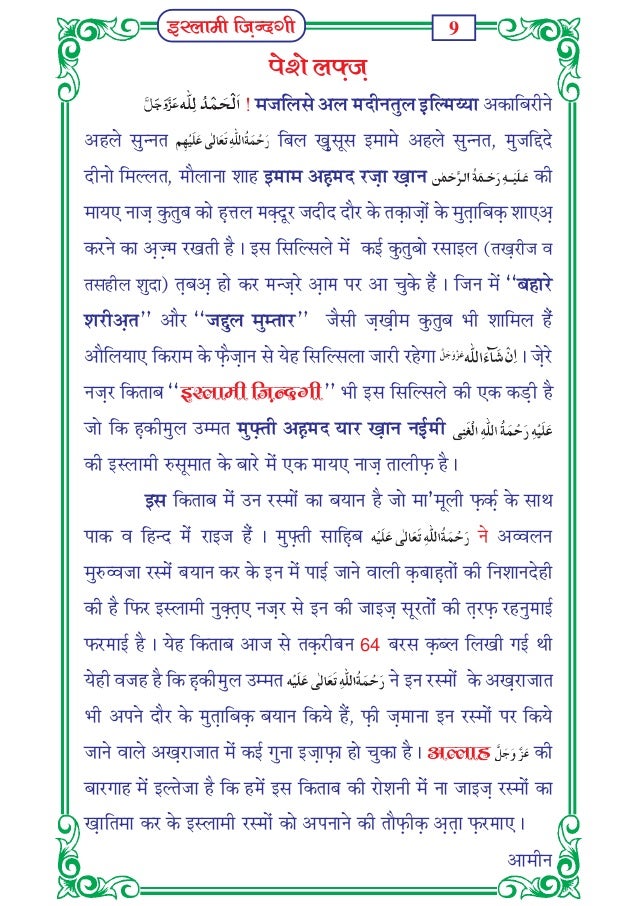 इस्लामी ज़िन्दगी
9
पेशे लफ़्ज़
اَلْحَمْدُ لِلّٰه عَزَّوَجَلَّ ! मजलिसे अल मदीनतुल इल्मिय्या अकाबिरीने
अहले सुन्नत رَحِمَهُمُ اللّٰهُ تَعَالٰی बिल ख़ुसूस इमामे अहले सुन्नत, मुजद्दिदे
दीनो मिल्लत, मौलाना शाह इमाम अह़मद रज़ा ख़ान عَلَيْهِ رَحْمَةُ الرَّحْمٰن की
मायए नाज़ कुतुब को ह़त्तल मक़्दूर जदीद दौर के तक़ाज़ों के मुत़ाबिक़ शाएअ़
करने का अ़ज़्म रखती है । इस सिल्सिले में कई कुतुबो रसाइल (तख़्रीज व
तसहील शुदा) त़बअ़ हो कर मन्ज़रे आ़म पर आ चुके हैं । जिन में “बहारे
शरीअ़त” और “जद्दुल मुम्तार” जैसी ज़ख़ीम कुतुब भी शामिल हैं
औलियाए किराम के फ़ैज़ान से येह सिल्सिला जारी रहेगा اِنْ شَآءَاللّٰه عَزَّوَجَلَّ । ज़ेरे
नज़र किताब “इस्लामी ज़िन्दगी” भी इस सिल्सिले की एक कड़ी है
जो कि ह़कीमुल उम्मत मुफ़्ती अह़मद यार ख़ान नईमी عَلَيْهِ رَحْمَةُ اللّٰهِ الْغَنِی
की इस्लामी रुसूमात के बारे में एक मायए नाज़ तालीफ़ है ।
इस किताब में उन रस्मों का बयान है जो मा’मूली फ़र्क़ के साथ
पाक व हिन्द में राइज हैं । मुफ़्ती साहि़ब رَحْمَةُ اللّٰهِ تَعَالٰی عَلَيْه ने अव्वलन
मुरुव्वजा रस्में बयान कर के इन में पाई जाने वाली क़बाह़तों की निशानदेही
की है फिर इस्लामी नुक़्त़ए नज़र से इन की जाइज़ सूरतों की त़रफ़ रहनुमाई
फरमाई है । येह किताब आज से तक़रीबन 64 बरस क़ब्ल लिखी गई थी
येही वजह है कि ह़कीमुल उम्मत رَحْمَةُ اللّٰهِ تَعَالٰی عَلَيْه ने इन रस्मों के अख़राजात
भी अपने दौर के मुत़ाबिक़ बयान किये हैं, फ़ी ज़माना इन रस्मों पर किये
जाने वाले अख़राजात में कई गुना इज़ाफ़ा हो चुका है । अल्लाह عَزَّ وَجَلَّ की
बारगाह में इल्तेजा है कि हमें इस किताब की रोशनी में ना जाइज़ रस्मों का
ख़ातिमा कर के इस्लामी रस्मों को अपनाने की तौफ़ीक़ अ़ता़ फ़रमाए ।
आमीन